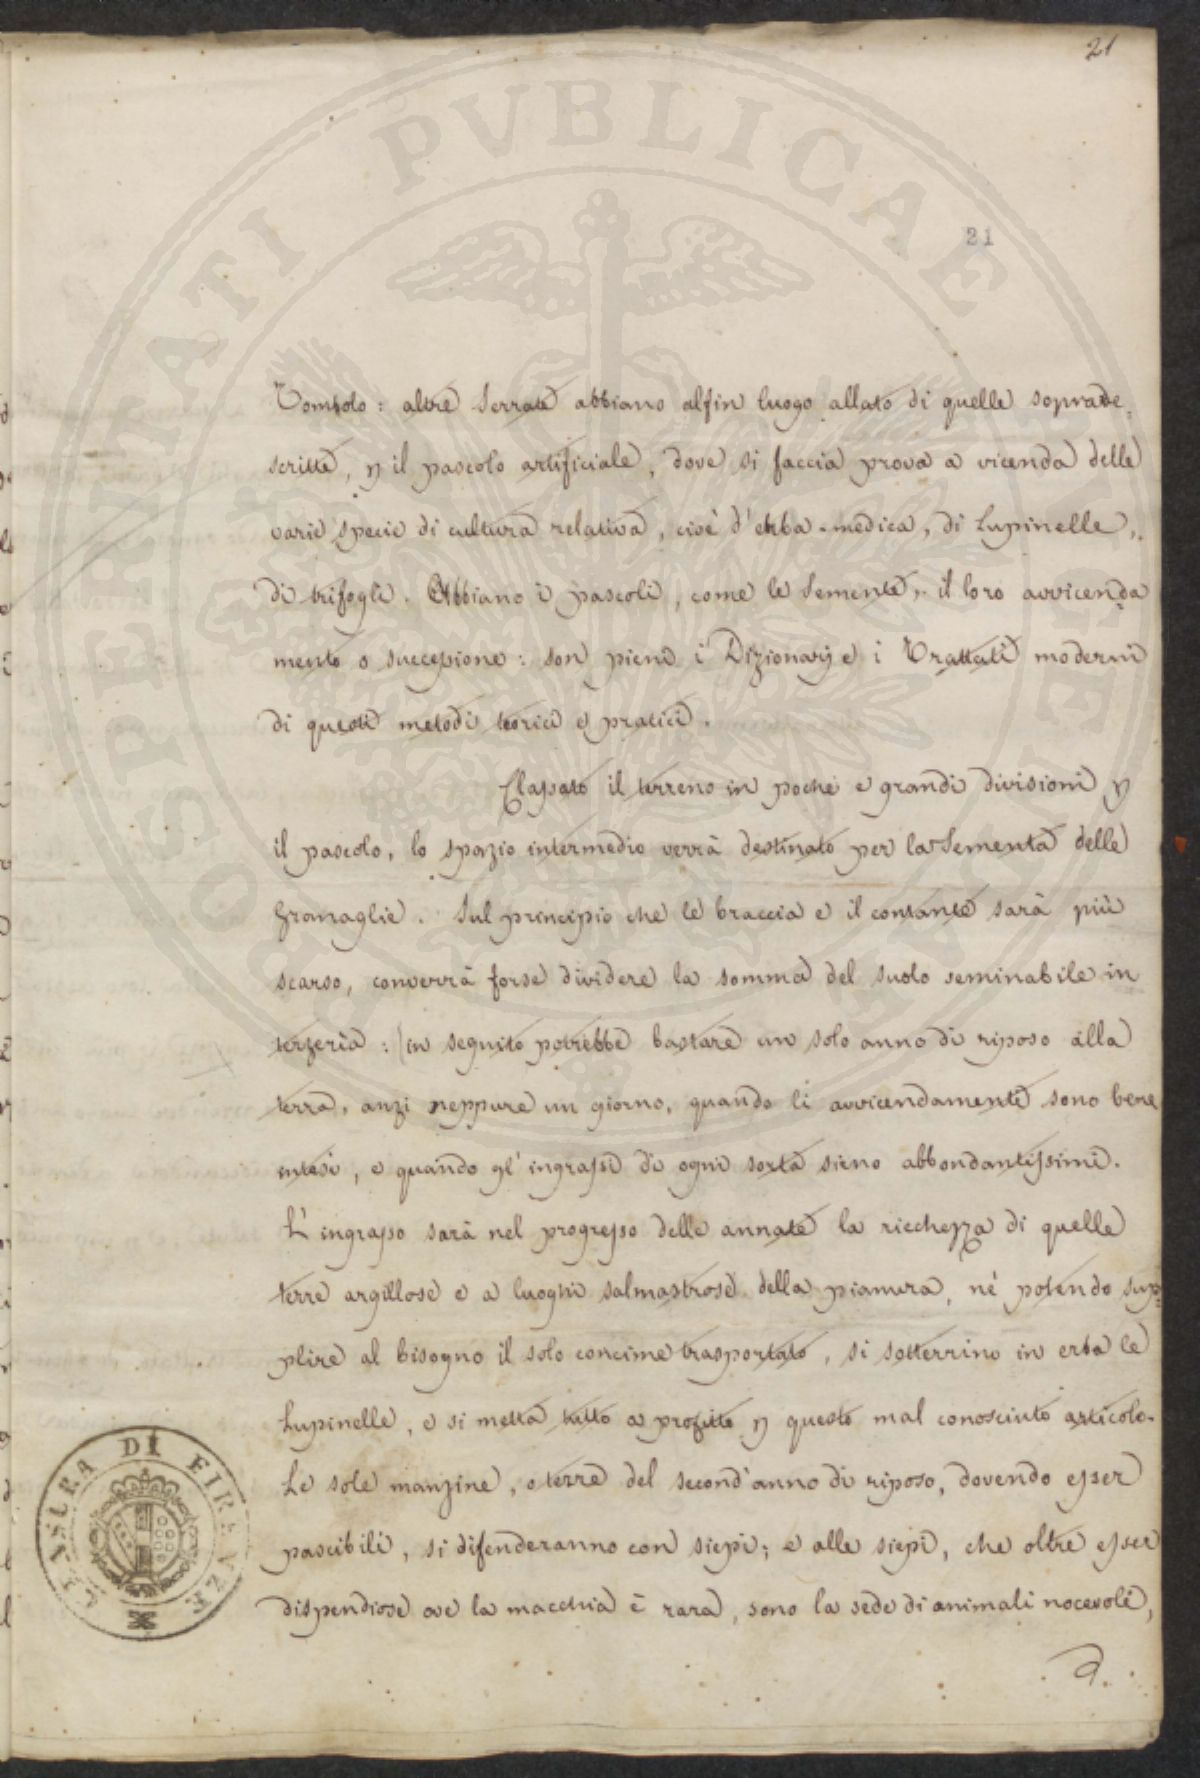 21
21
Tombolo: altre serrate abbiano alfin luogo allato di quelle soprade=
scritte, p il pascolo artificiale, dove si faccia prova a vicenda delle
varie specie di cultura relativa, cioè d'erba-medica, di Lupinelle,
di trifogli. Abbiano i pascoli, come le semente, il loro avvicenda
mento o successione: son pieni i Dizionarj e i Trattati moderni
di questi metodi teorici e pratici.
Classato il terreno in poche e grandi divisioni p
il pascolo, lo spazio intermedio verrà destinato per la Sementa delle
Granaglie. Sul principio che le braccia e il contante sarà più
scarso, converrà forse dividere la somma del suolo seminabile in
terzeria: (in seguito potrebbe bastare un solo anno di riposo alla
terra, anzi neppure un giorno, quando li avvicendamenti sono bene
intesi, e quando gl'ingrassi di ogni sorta sieno abbondantissimi.
L'ingrasso sarà nel progresso delle annate la ricchezza di quelle
terre argillose e a luoghi salmastrose della pianura, nè potendo sup=
plire al bisogno il solo concime trasportato, si sotterrino in erba le
Lupinelle, e si metta tutto a profitto p questo mal conosciuto articolo.
Le sole manzine, o terre del second'anno di riposo, dovendo esser
pascibili, si difenderanno con siepi; e alle siepi, che oltre esser
dispendiose ove la macchia è rara, sono la sede di animali nocevoli,
CENSURA DI FIRENZE
PROSPERITATI PVBLICAE